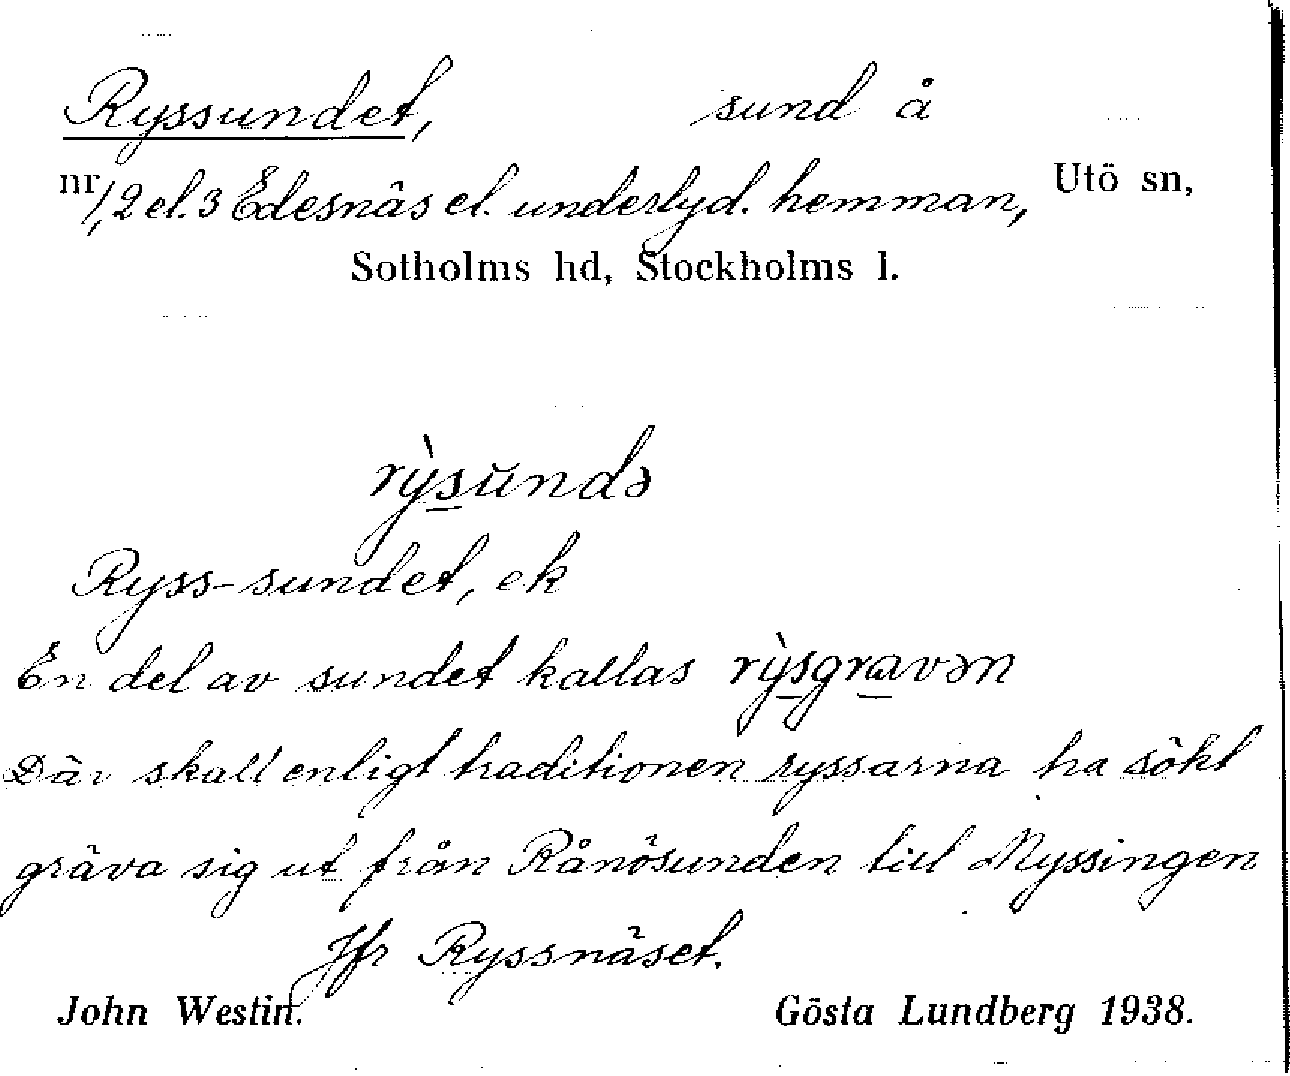 Ryssundet, sund å
nr 1, 2 el. 3 Edesnäs el. underlyd. hemman, Utö sn,
Sotholms hd, Stockholms l.
rỳsŭndə
Ryss-sundet, ek
En del av sundet kallas rỳsgravən
Där skall enligt traditionen ryssarna ha sökt
gräva sig ut från Rånösunden till Myssingen
Jfr Ryssnäset.
John Westin. Gösta Lundberg 1938.